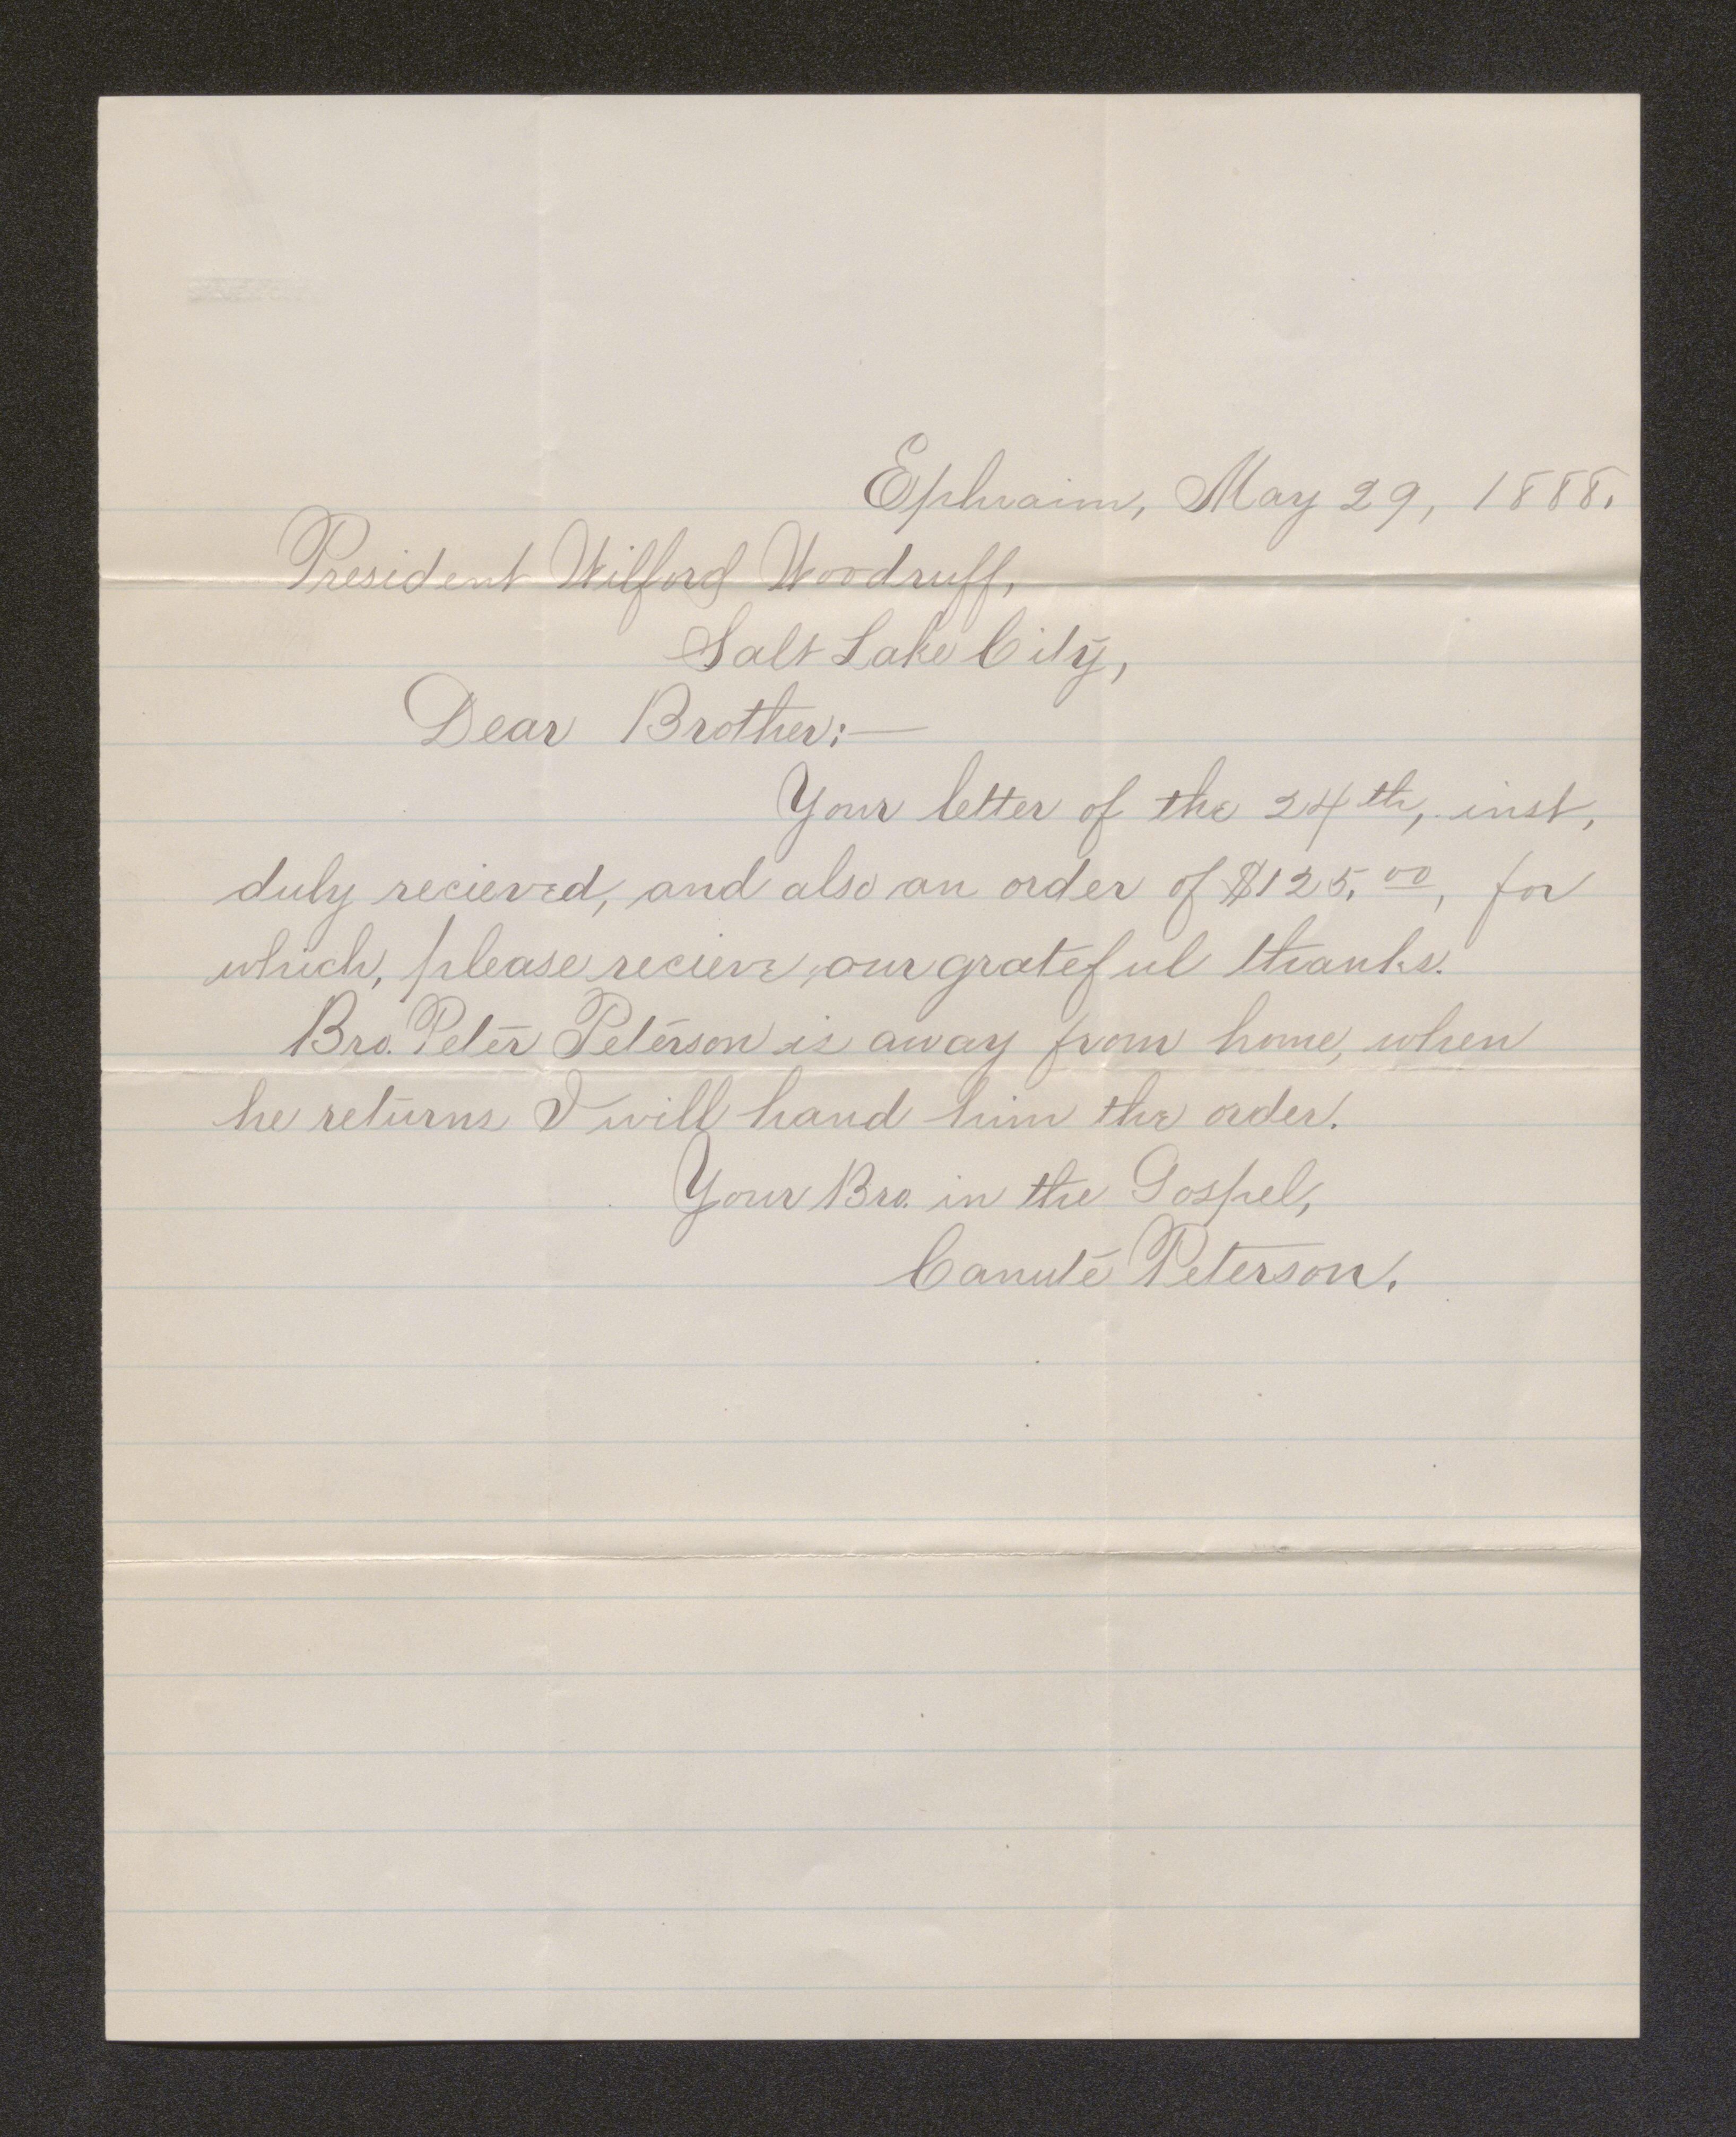 Ephraim, May 29, 1888.
President Wilford Woodruff,
Salt Lake City,
Dear Brother:—
Your letter of the 24th, inst,
duly recieved, and also an order of $125.00, for
which, please recieve, our grateful thanks.
Bro. Peter Peterson is away from home, when
he returns I will hand him the order.
Your Bro. in the Gospel,
Canute Peterson.